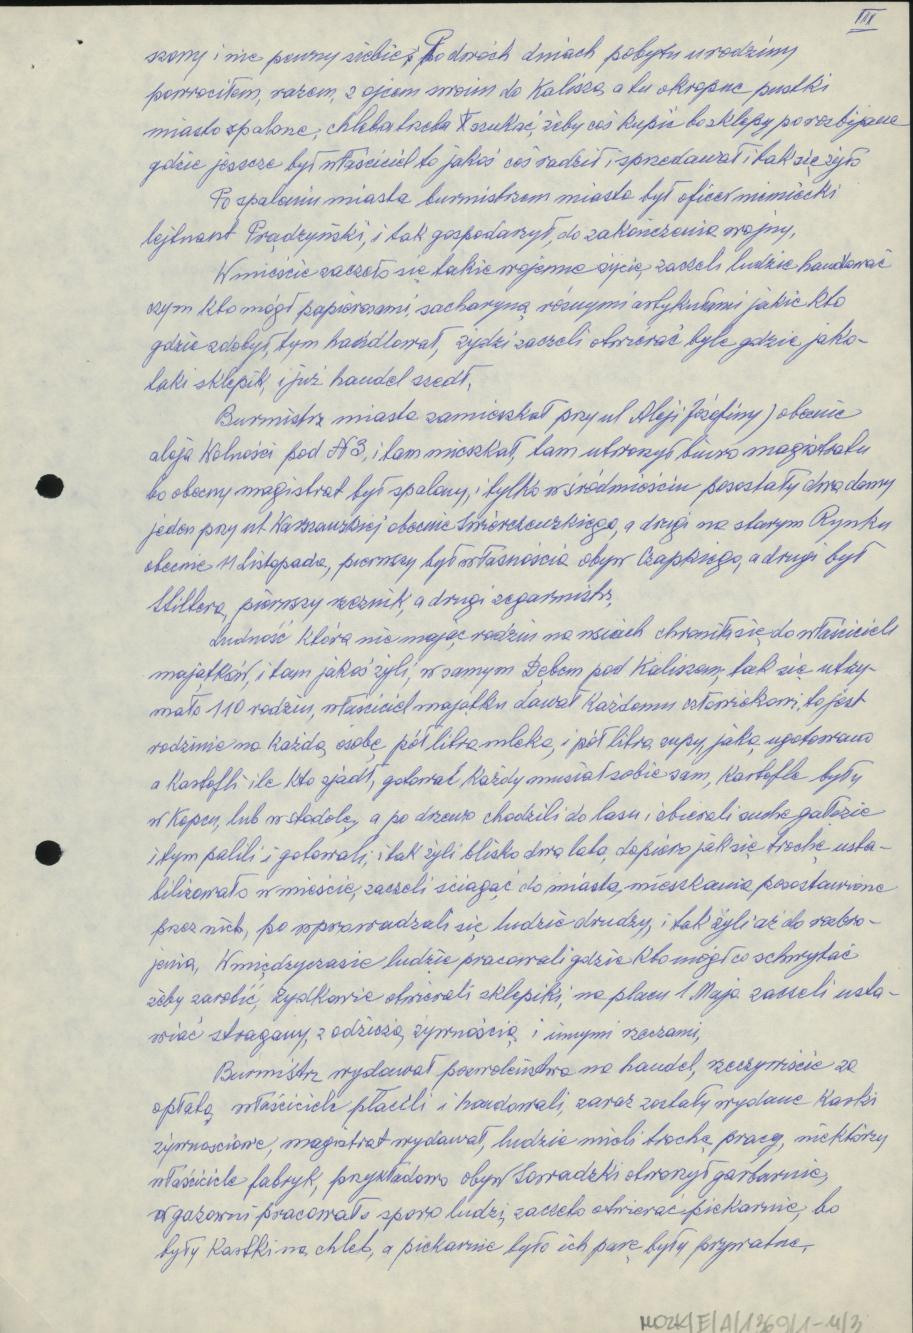 III
szony i nie pewny siebie, Po dwóch dniach pobytu u rodziny
powróciłem, razem, z ojcem moim do Kalisza, a tu okropne pustki
miasto spalone, chleba trzeba szukać, żeby coś kupić bo sklepy porozbijane
gdzie jeszcze był właściciel to jakoś coś radził i sprzedawał i tak się żyło
Po spaleniu miasta burmistrzem miasta był oficer niemiecki
lejtnant Prądzyński, i tak gospodarzył, do zakończenia wojny,
W mieście zaczęło się takie wojenne życie, zaczeli ludzie handlować
czym kto mógł papierosami, sacharyną, różnymi artykułami jakie kto
gdzie zdobył, tym handlował, żydzi zaczeli otwierać byle gdzie jako-
taki sklepik, i już handel szedł,
Burmistrz miasta zamieszkał przy ul Aleji Józefiny) obecnie
aleja Wolności pod N 3, i tam mieszkał, tam utworzył biuro magistratu
bo obecny magistrat był spalony, i tylko w śródmieściu pozostały dwa domy
jeden przy ul. Warszawskiej obecnie Świerczewskiego, a drugi na starym Rynku
obecnie 11 Listopada, pierwszy był własnościa obyw Czapkiego, a drugi był
Stillera, pierwszy rzeźnik, a drugi zegarmistrz,
Ludność która nie mając rodzin na wsiach chroniła się do właścicieli
majątków, i tam jakoś żyli, w samym Dębem pod Kaliszem, tak się utrzy-
mało 110 rodzin, właściciel majątku dawał każdemu człowiekowi, to jest
rodzinie na każdą osobę pół litra mleka, i pół litra zupy, jaką ugotowano
a kartofli ile kto zjadł, gotować każdy musiał sobie sam, kartofle były
w kopcu, lub w stodole, a po drzewo chodzili do lasu i zbierali suche gałęzie
i tym palili i gotowali, i tak żyli blisko dwa lata, dopiero jak się trochę usta-
bilizowało w mieście, zaczeli ściągać do miasta, mieszkania pozostawione
przez nich, po wprowadzali się ludzie drudzy, i tak żyli aż do rozbro-
jenia, W międzyczasie ludzie pracowali gdzie kto mógł co schwytać
żeby zarobić, żydkowie otwierali sklepiki, na placu 1 Maja zaczeli usta-
wiać stragany, z odzieżą, żywnością i innymi rzeczami,
Burmistrz wydawał pozwoleństwa na handel, rzeczywiście za
opłatą, właściciele płacili i handowali, zaraz zostały wydane kartki
żywnościowe, magistrat wydawał, ludzie mieli trochę pracy, niektórzy
właściciele fabryk, przykładowo obyw Sowadzki otworzył garbarnie,
w gazowni pracowało sporo ludzi, zaczeto otwierać piekarnie, bo
były kartki na chleb, a piekarnie było ich parę były prywatne,
MOZK/E/A/1369/1-4/3